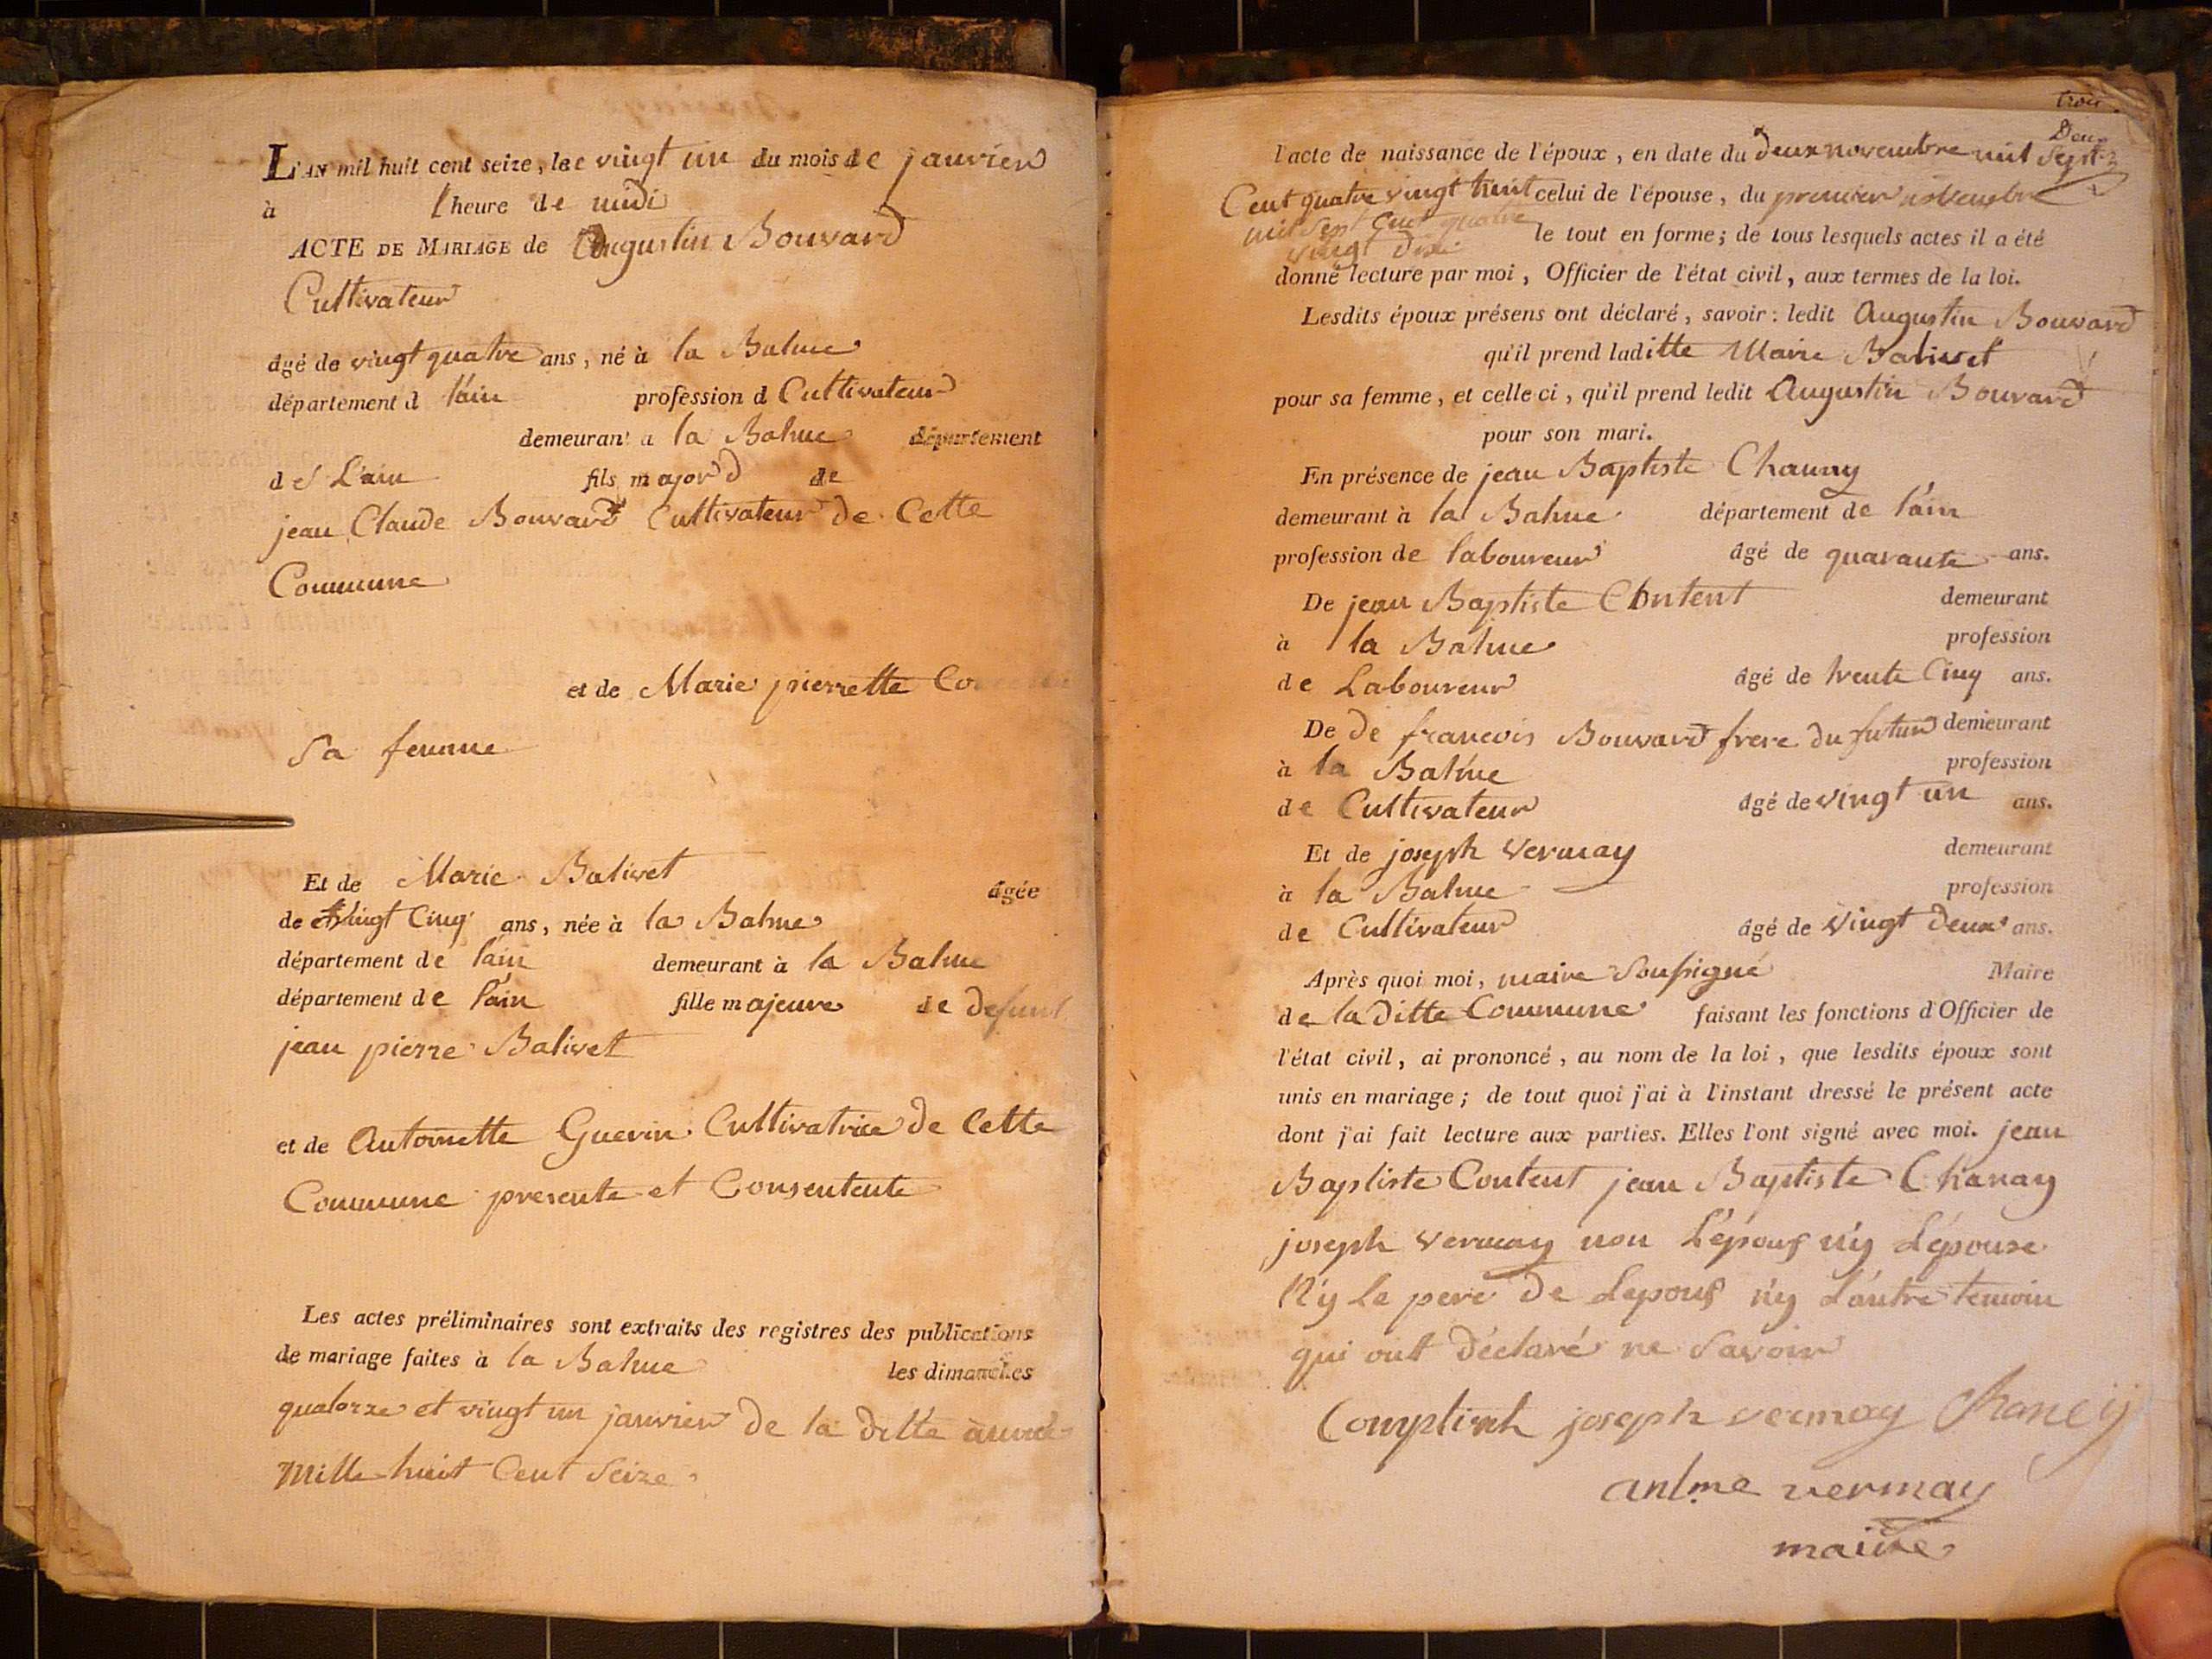 L'AN mil huit cent seize, le vingt un du mois de janvier
à l'heure de midi
ACTE DE MARIAGE de Augustin Bouvard
Cultivateur
âgé de vingt quatre ans, né à la Balme
département d l'ain profession d Cultivateur
demeurant a la Balme département
de L'ain fils major de
jean Claude Bouvard Cultivateur de Cette
Commune
et de Marie pierrette
Sa femme
Et de Marie Balivet âgée
de vingt Cinq ans, née à la Balme
département de l'ain demeurant à la Balme
département de l'ain fille majeure de defunt
jean pierre Balivet
et de Antoinette Guerin Cultivatrice de Cette
Commune presente et Consentente
Les actes préliminaires sont extraits des registres des publications
de mariage faites à la Balme les dimanches
quatorze et vingt un janvier de la ditte année
Mille huit Cent Seize
trois
Deux
l'acte de naissance de l'époux, en date du deux novembre mil Sept
Cent quatre vingt huit celui de l'épouse, du premier novembre
mil Sept Cent quatre le tout en forme; de tous lesquels actes il a été
vingt dix
donné lecture par moi, Officier de l'état civil, aux termes de la loi.
Lesdits époux présens ont déclaré, savoir: ledit Augustin Bouvard
qu'il prend laditte Marie Balivet
pour sa femme, et celle ci, qu'il prend ledit Augustin Bouvard
pour son mari.
En présence de jean Baptiste Chanay
demeurant à la Balme département de l'ain
profession de laboureur âgé de quarante ans.
De jean Baptiste Content demeurant
à la Balme profession
de Laboureur âgé de trente Cinq ans.
De de francois Bouvard frere du futur demeurant
à la Balme profession
de Cultivateur âgé de vingt un ans.
Et de joseph Vermay demeurant
à la Balme profession
de Cultivateur âgé de vingt deux ans.
Après quoi moi, maire Soussigné Maire
de la ditte Commune faisant les fonctions d'Officier de
l'état civil, ai prononcé, au nom de la loi, que lesdits époux sont
unis en mariage; de tout quoi j'ai à l'instant dressé le présent acte
dont j'ai fait lecture aux parties. Elles l'ont signé avec moi. jean
Baptiste Content jean Baptiste Chanay
joseph Vermay non L'épous n'y L'épouse
N'y Le pere de Lepous n'y L'autre temoin
qui ont déclaré ne Savoir
joseph vermay Chaney
antme vermay
maire